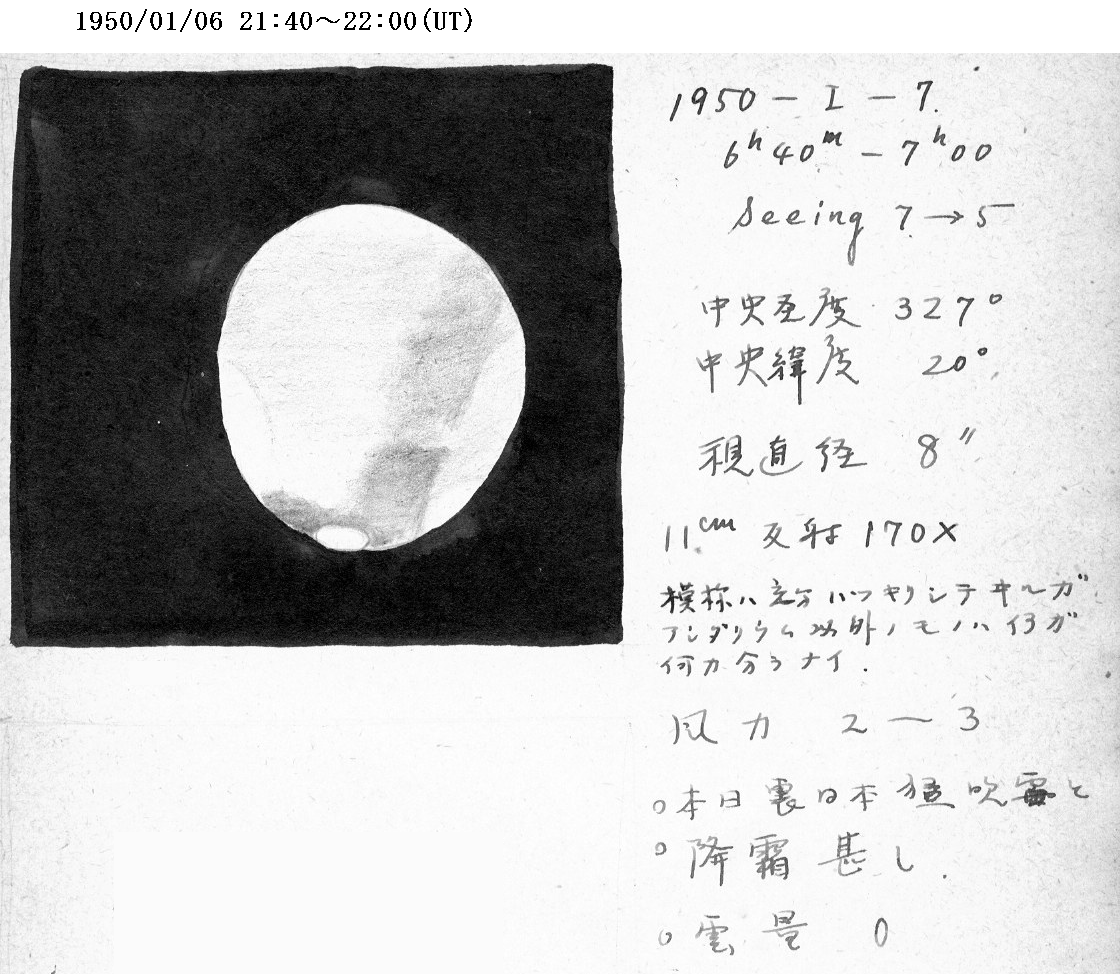 1950/01/06 21:40～22:00(UT)
1950 － I － 7.
6h 40m － 7h 00
Seeing 7 → 5
中央至度 327°
中央緯度 20°
視直径 8″
11cm 反射 170×
模様ハ充分ハッキリシテヰルガ
フンダリウム以外ノモノハ何ガ
何カ分ラナイ.
風力 2 ～ 3
○本日裏日本猛吹雪と
○降霜甚し.
○雲量 0